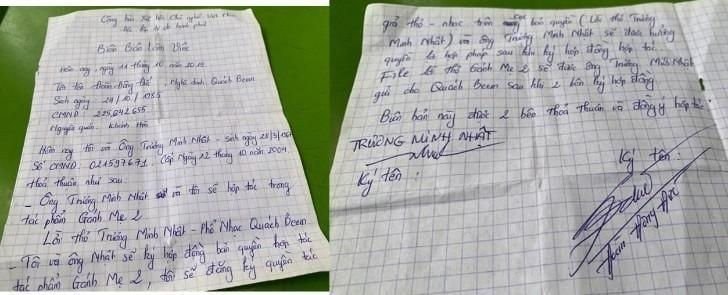 Cộng hòa Xã hội Chủ nghĩa Việt Nam
Độc lập tự do hạnh phúc
Biên Bản Làm Việc
Hôm nay ngày 11 tháng 10 năm
Tôi tên Đoàn Đông Đức. Nghệ danh Quách Beem
Sinh ngày 28/10/1985
CMND: 225642655
Nguyên quán: Khánh Hòa
Hôm nay tôi và Ông Trương Minh Nhật sinh ngày
Số CMND: 021597671 Cấp Ngày 12 tháng 10 năm 2004
thoả thuận như sau
- Ông Trương Minh Nhật và tôi sẽ hợp tác trong
tác phẩm Gánh Mẹ 2
Lời thơ Trương Minh Nhật - Phổ Nhạc Quách Beem
- Tôi và ông Nhật sẽ ký hợp đồng bản quyền hợp tác
tác phẩm Gánh Mẹ 2, tôi sẽ đăng ký quyền tác
giả thơ - nhạc trên bản quyền (Lời thơ Trương
Minh Nhật) và ông Trương Minh Nhật sẽ được hưởng
quyền lợi hợp pháp sau khi ký hợp đồng hợp tác
File lời thơ Gánh Mẹ 2 sẽ được ông Trương Minh Nhật
gửi cho Quách Beem sau khi 2 bên ký hợp đồng
Biên bản này được 2 bên thoả thuận và đồng ý hợp tác
TRƯƠNG MINH NHẬT
Ký tên:
Ký tên: